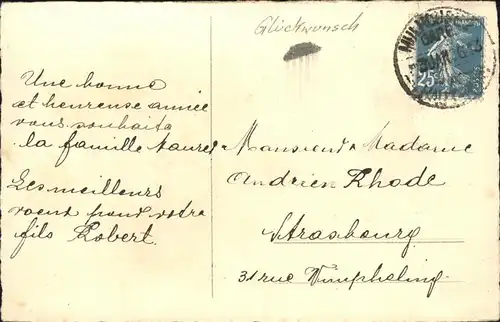 Glückwunsch
MULHOUSE
GARE
25
Une bonne
et heureuse année
vous souhaite
la famille
Les meilleurs
voeux pour votre
fils Robert.
Monsieur & Madame
Andrien Rhode
Strasbourg
31 rue Wimpheling